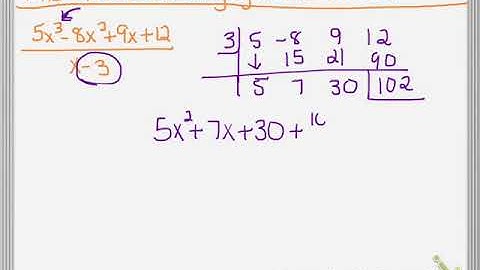 5x³-8x²+9x+12
x-3
3 5 -8 9 12
↓ 15 21 90
5 7 30 102
5x²+7x+30+10